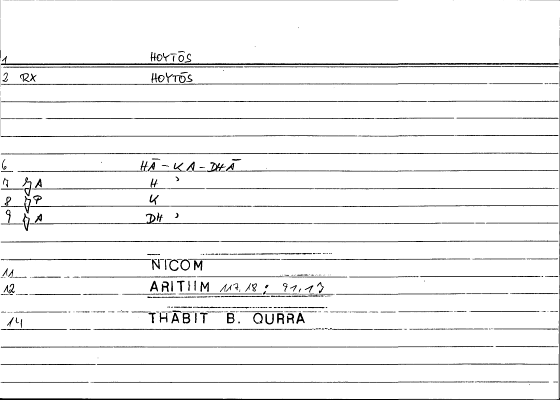 1 HOYTŌS
2 RX HOYTŌS
6 HĀ-KA-DHĀ
7 A H ʾ
8 P K
9 A DH ʾ
11 NICOM
12 ARITIIM 117,18; 91,13
14 THĀBIT B. QURRA